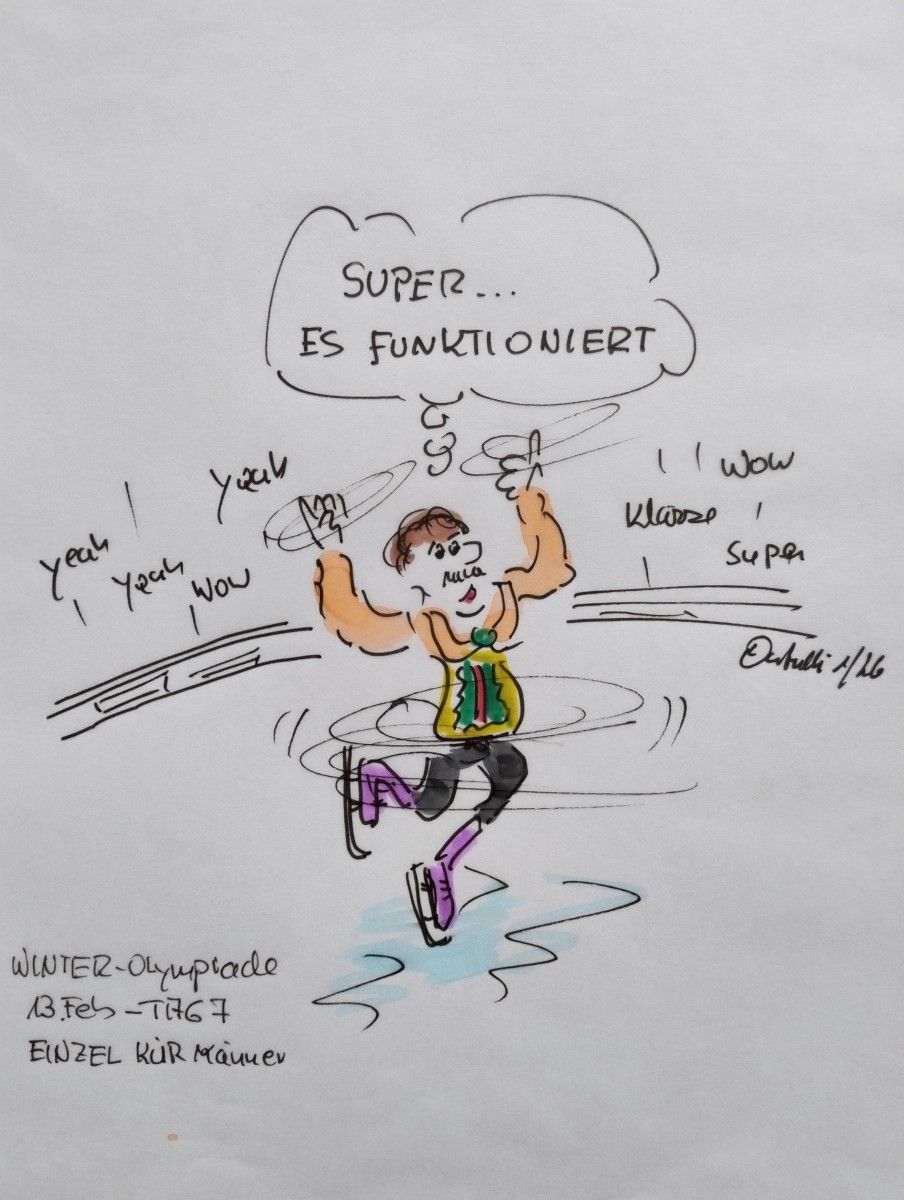 SUPER...
ES FUNKTIONIERT
yeah
yeah
yeah
wow
wow
Klasse
super
1/26
WINTER-Olympiade
13.Feb - TAG 7
EINZEL KÜR Männer